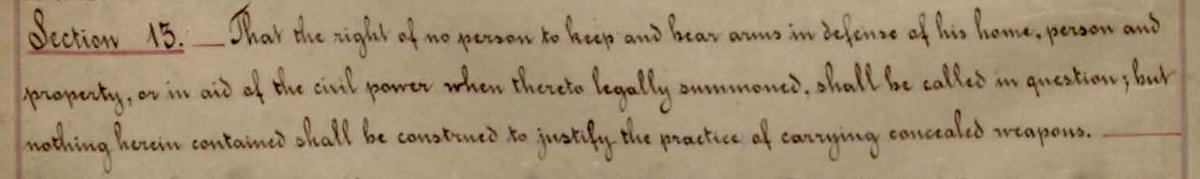 Section 13. — That the right of no person to keep and bear arms in defense of his home, person and
property, or in aid of the civil power when thereto legally summoned, shall be called in question; but
nothing herein contained shall be construed to justify the practice of carrying concealed weapons. —